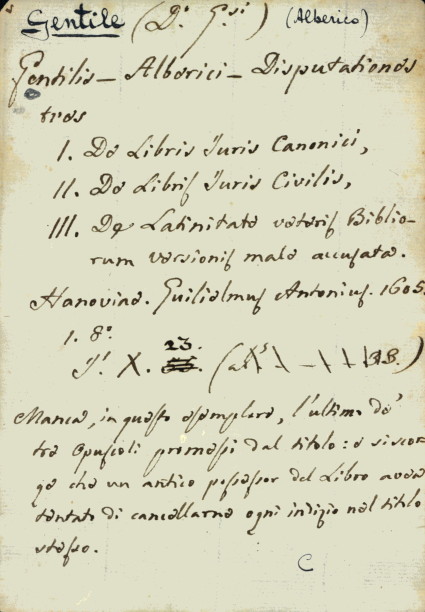 Gentile (D. G.si) (Alberico)
Gentilis – Alberici – Disputationes
tres
I. De Libris Juris Canonici,
II. De Libris Juris Civilis,
III. De Latinitate veteris Biblio-
rum versionis male accusata.
Hanoviae. Guilielmus Antonius. 1605.
1. 8º
X. 23.
Manca, in questo esemplare, l'ultimo de'
tre Opuscoli promessi dal titolo: e si scor-
ge che un antico possessor del Libro avea
tentato di cancellarne ogni indizio nel titolo
stesso.
C